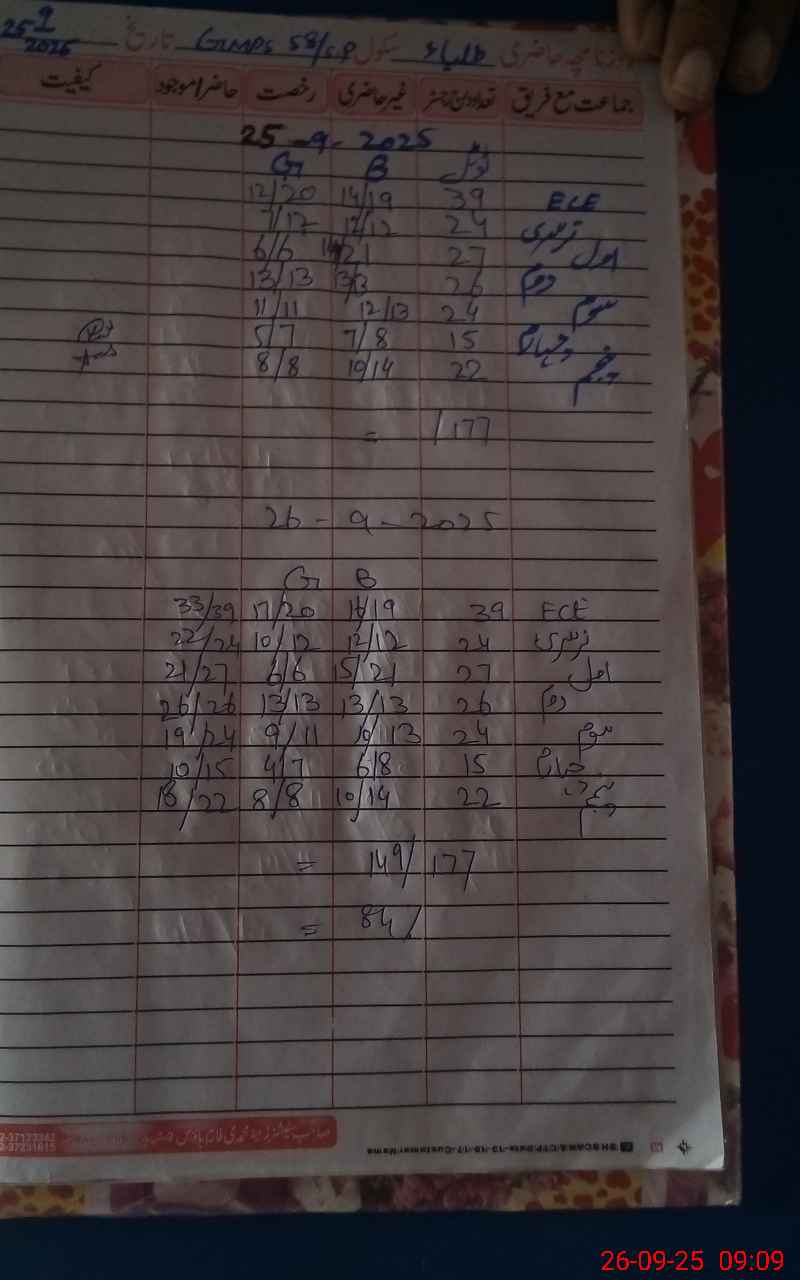 روزنامچہ حاضری طلباء سکول GMPS 58/SP تاریخ 25 9/2025
جماعت مع فریق تعداد درج رجسٹر غیر حاضری رخصت حاضر/موجود کیفیت
25-9-2025
ٹوٹل B G
ECE 39 14/19 12/20
نرسری 24 12/12 7/12
اول 27 21 6/6
دوم 26 13/13
سوم 24 12/13 11/11
چہارم 15 7/8 5/7
پنجم 22 10/14 8/8
= /177
26-9-2025
B G
ECE 39 16/19 17/20 33/39
نرسری 24 12/12 10/12 22/24
اول 27 15/21 6/6 21/27
دوم 26 13/13 13/13 26/26
سوم 24 10/13 9/11 19/24
چہارم 15 6/8 4/7 10/15
پنجم 22 10/14 8/8 18/22
= 149/177
= 84/
26-09-25 09:09